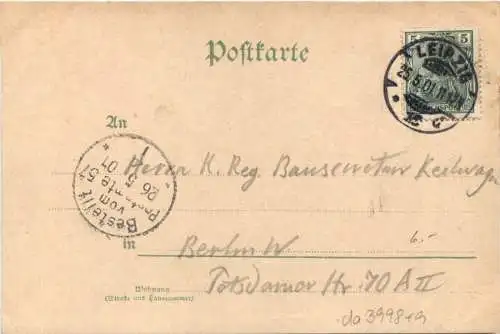 Postkarte
5 5
LEIPZIG
25.5.01.11-12V.
An
Herrn K. Reg. Bausecretär
Bestellt
vom
Postamte 57
26 5 01
in
Berlin W
6.-
Wohnung
(Straße und Hausnummer)
Potsdamer Str. 70 A II
da3998+9